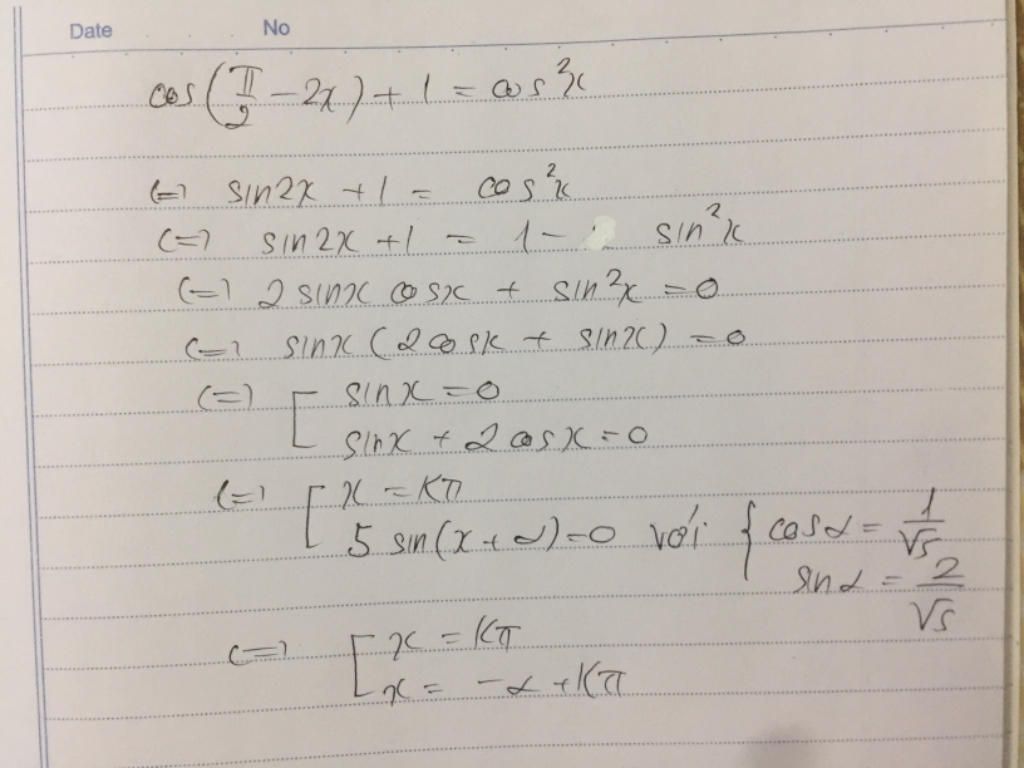 Date No
cos(π/2 - 2x) + 1 = cos²x
(=) sin2x + 1 = cos²x
(=) sin2x + 1 = 1 - sin²x
(=) 2 sinx cosx + sin²x = 0
(=) sinx (2cosx + sinx) = 0
(=) [ sinx = 0
sinx + 2cosx = 0
(=) [ x = Kπ
5 sin(x + α) = 0 với { cosα = 1/√5
sinα = 2/√5
(=) [ x = Kπ
x = -α + Kπ